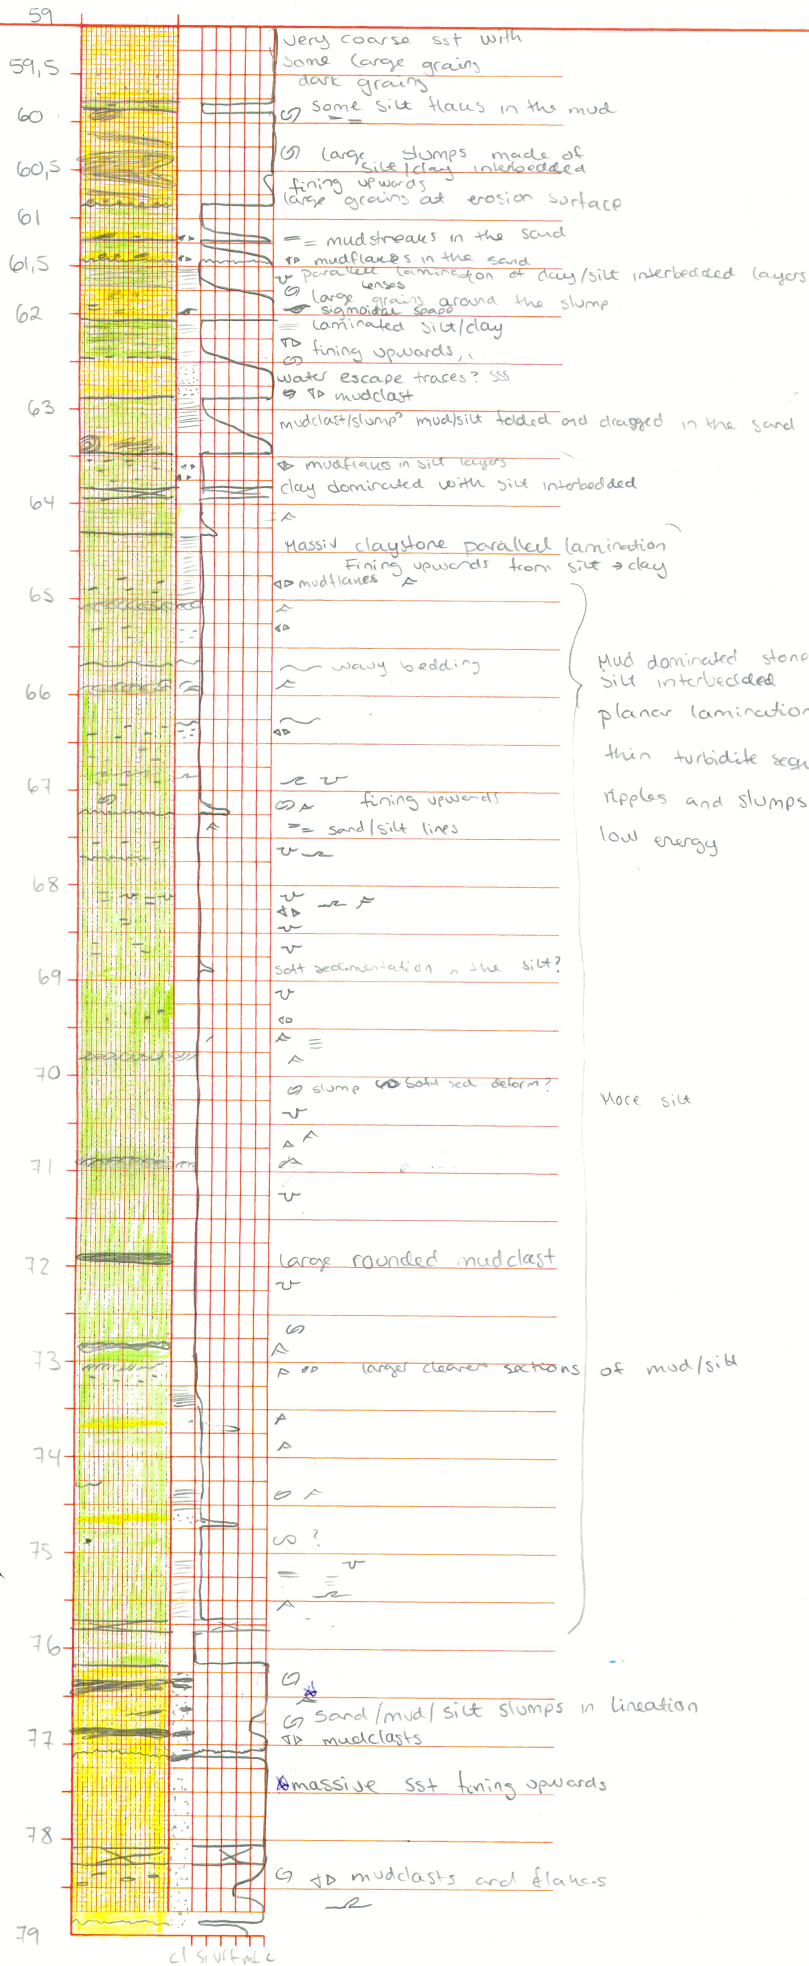 59
very coarse sst with
59,5 some large grains
dark grains
60 some silt flaks in the mud
large slumps made of
60,5 silt/clay interbedded
fining upwards
large grains at erosion surface
61
= mudstreaks in the sand
61,5 mudflakes in the sand
parallel lamination of clay/silt interbedded layers
lenses
large grains around the slump
62 sigmoidal
laminated silt/clay
fining upwards
water escape traces? SSS
63 mudclast
mudclast/slump? mud/silt folded and dragged in the sand
mudflakes in silt layers
64 clay dominated with silt interbedded
Massiv claystone parallell lamination
Fining upwards from silt → clay
65 mudflakes
wavy bedding
66
Mud dominated stone
silt interbedded
planar lamination
thin turbidite sequ
67
fining upwards
ripples and slumps
= sand/silt lines
low energy
68
69 soft sedimentation n the silt?
70
slump soft sed deform?
More silt
71
72 large rounded mudclast
73 larger clearer sections of mud/silt
74
75 ?
76
sand/mud/silt slumps in lineation
77 mudclasts
massive sst fining upwards
78
mudclasts and flakes
79
cl si vf f m c